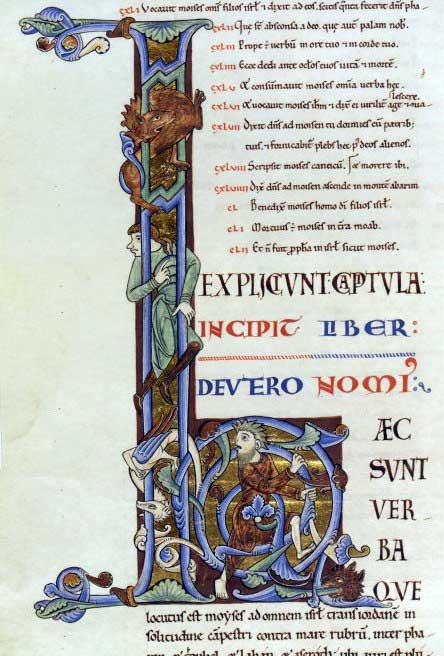 CXLI Vocavit moises omnes filios isrł & dixit ad eos. fecerit dñs pha-
CXLII Que st̄ absconsa a deo. que aut̄ palam nob̄.
CXLIII Prope ÷ verbū in ore tuo & in corde tuo.
CXLIIII Ecce dedi ante oclos tuos vitā & mortē.
CXLV Et consūmavit moises omnia verba hec.
lescere.
CXLVI Et vocavit moises ihm̄ & dix̄ ei virilit̄ age &
CXLVII Dixit dñs ad moisen tu dormies cū patrib;
tuis. & fornicabit̄ plebs hec p̄ deos alienos.
CXLVIII Scripsit moises canticū. & morere ibi.
CXLVIIII Dix̄ dñs ad moisen ascende in montē abarim
CL Benedix̄ moises homo dī filios isrł.
CLI Mortuus ÷ moises in t̄ra moab.
CLII Et n̄ fuit ppħa in isrł sicut moises.
EXPLICIUNT: CAPITULA:
INCIPIT LIBER:
DEUTERONOMI:
HÆC
SUNT
VER
BA
QUE
locutus est moyses ad omnem isrł trans iordanē in
solitudine cāpestri contra mare rubrū. inter pha